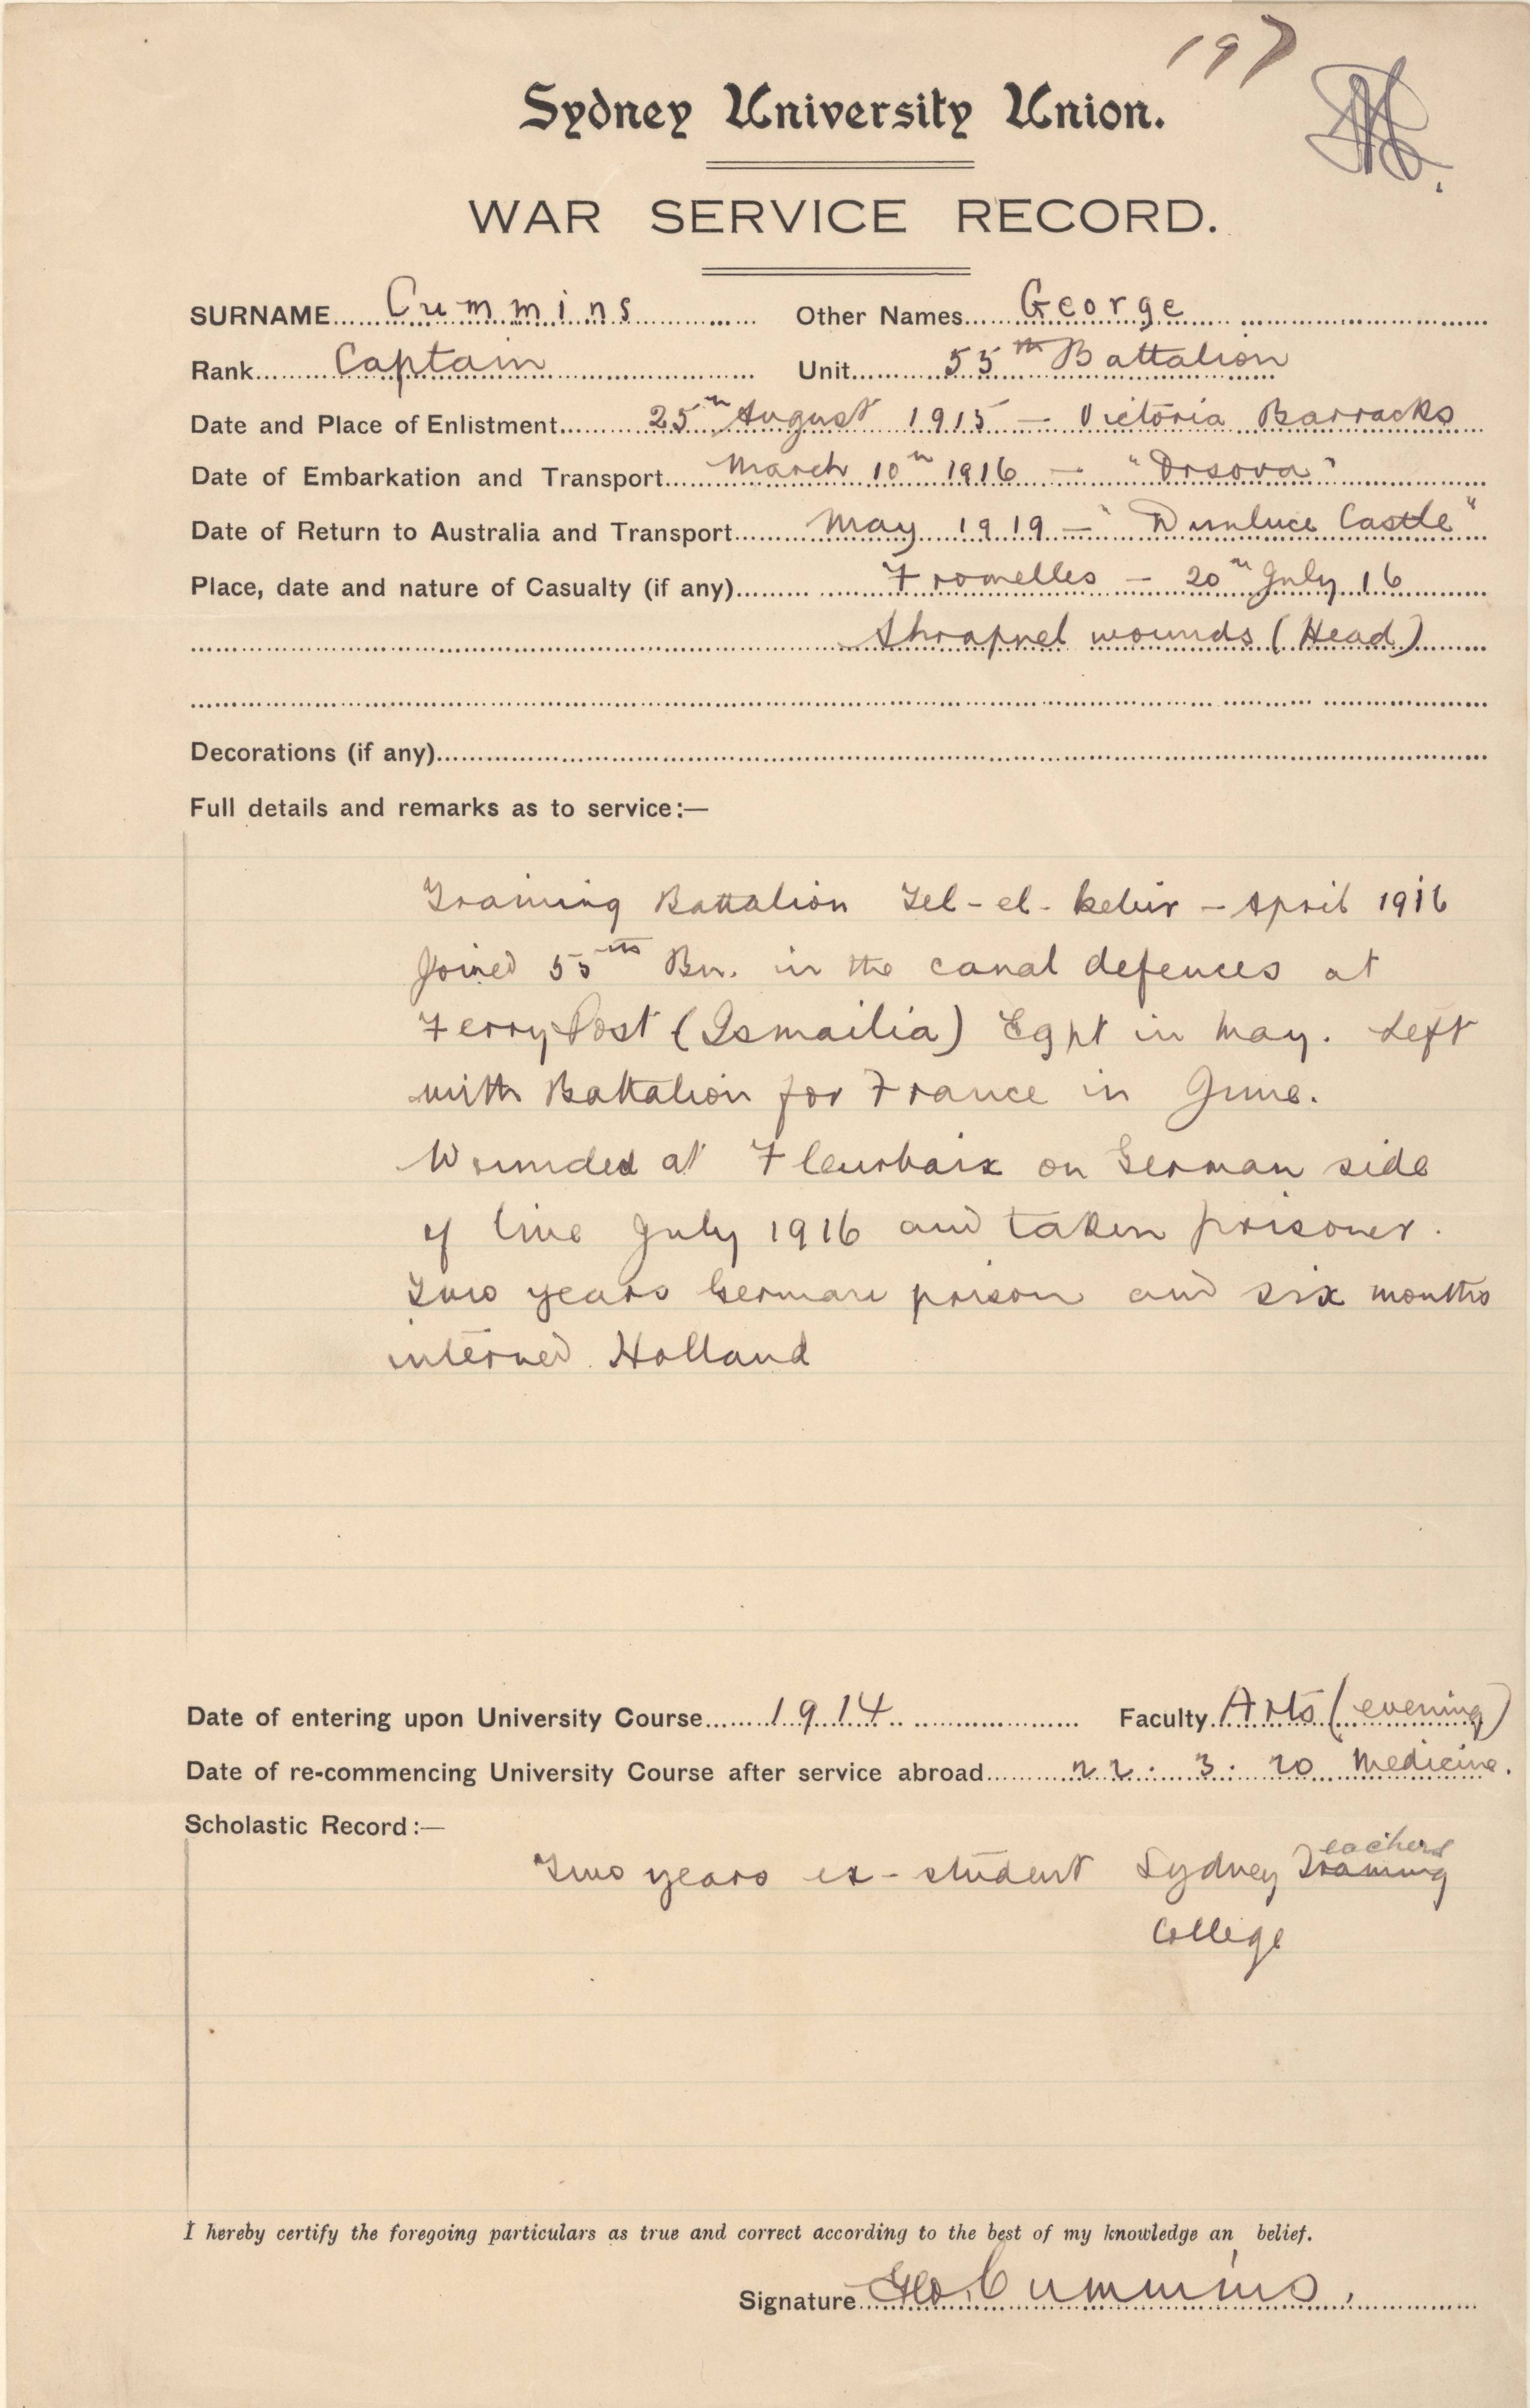 197
Sydney University Union.
WAR SERVICE RECORD.
SURNAME Cummins Other Names George
Rank Captain Unit 55th Battalion
Date and Place of Enlistment 25th August 1915 — Victoria Barracks
Date of Embarkation and Transport March 10th 1916 — "Orsova"
Date of Return to Australia and Transport May 1919 — "Dunluce Castle"
Place, date and nature of Casualty (if any) Fromelles — 20th July 16
Shrapnel wounds (Head)
Decorations (if any)
Full details and remarks as to service:—
Training Battalion Tel-el-kebir — April 1916
Joined 55th Bn. in the canal defences at
Ferry Post (Ismailia) Egpt in May. Left
with Battalion for France in June.
Wounded at Fleurbaix on German side
of line July 1916 and taken prisoner.
Two years German prison and six months
interned Holland
Date of entering upon University Course 1914 Faculty Arts (evening)
Date of re-commencing University Course after service abroad 22: 3: 20 Medicine.
Scholastic Record:—
eachers
Two years ex-student Sydney Training
College
I hereby certify the foregoing particulars as true and correct according to the best of my knowledge an belief.
Signature Geo. Cummins.